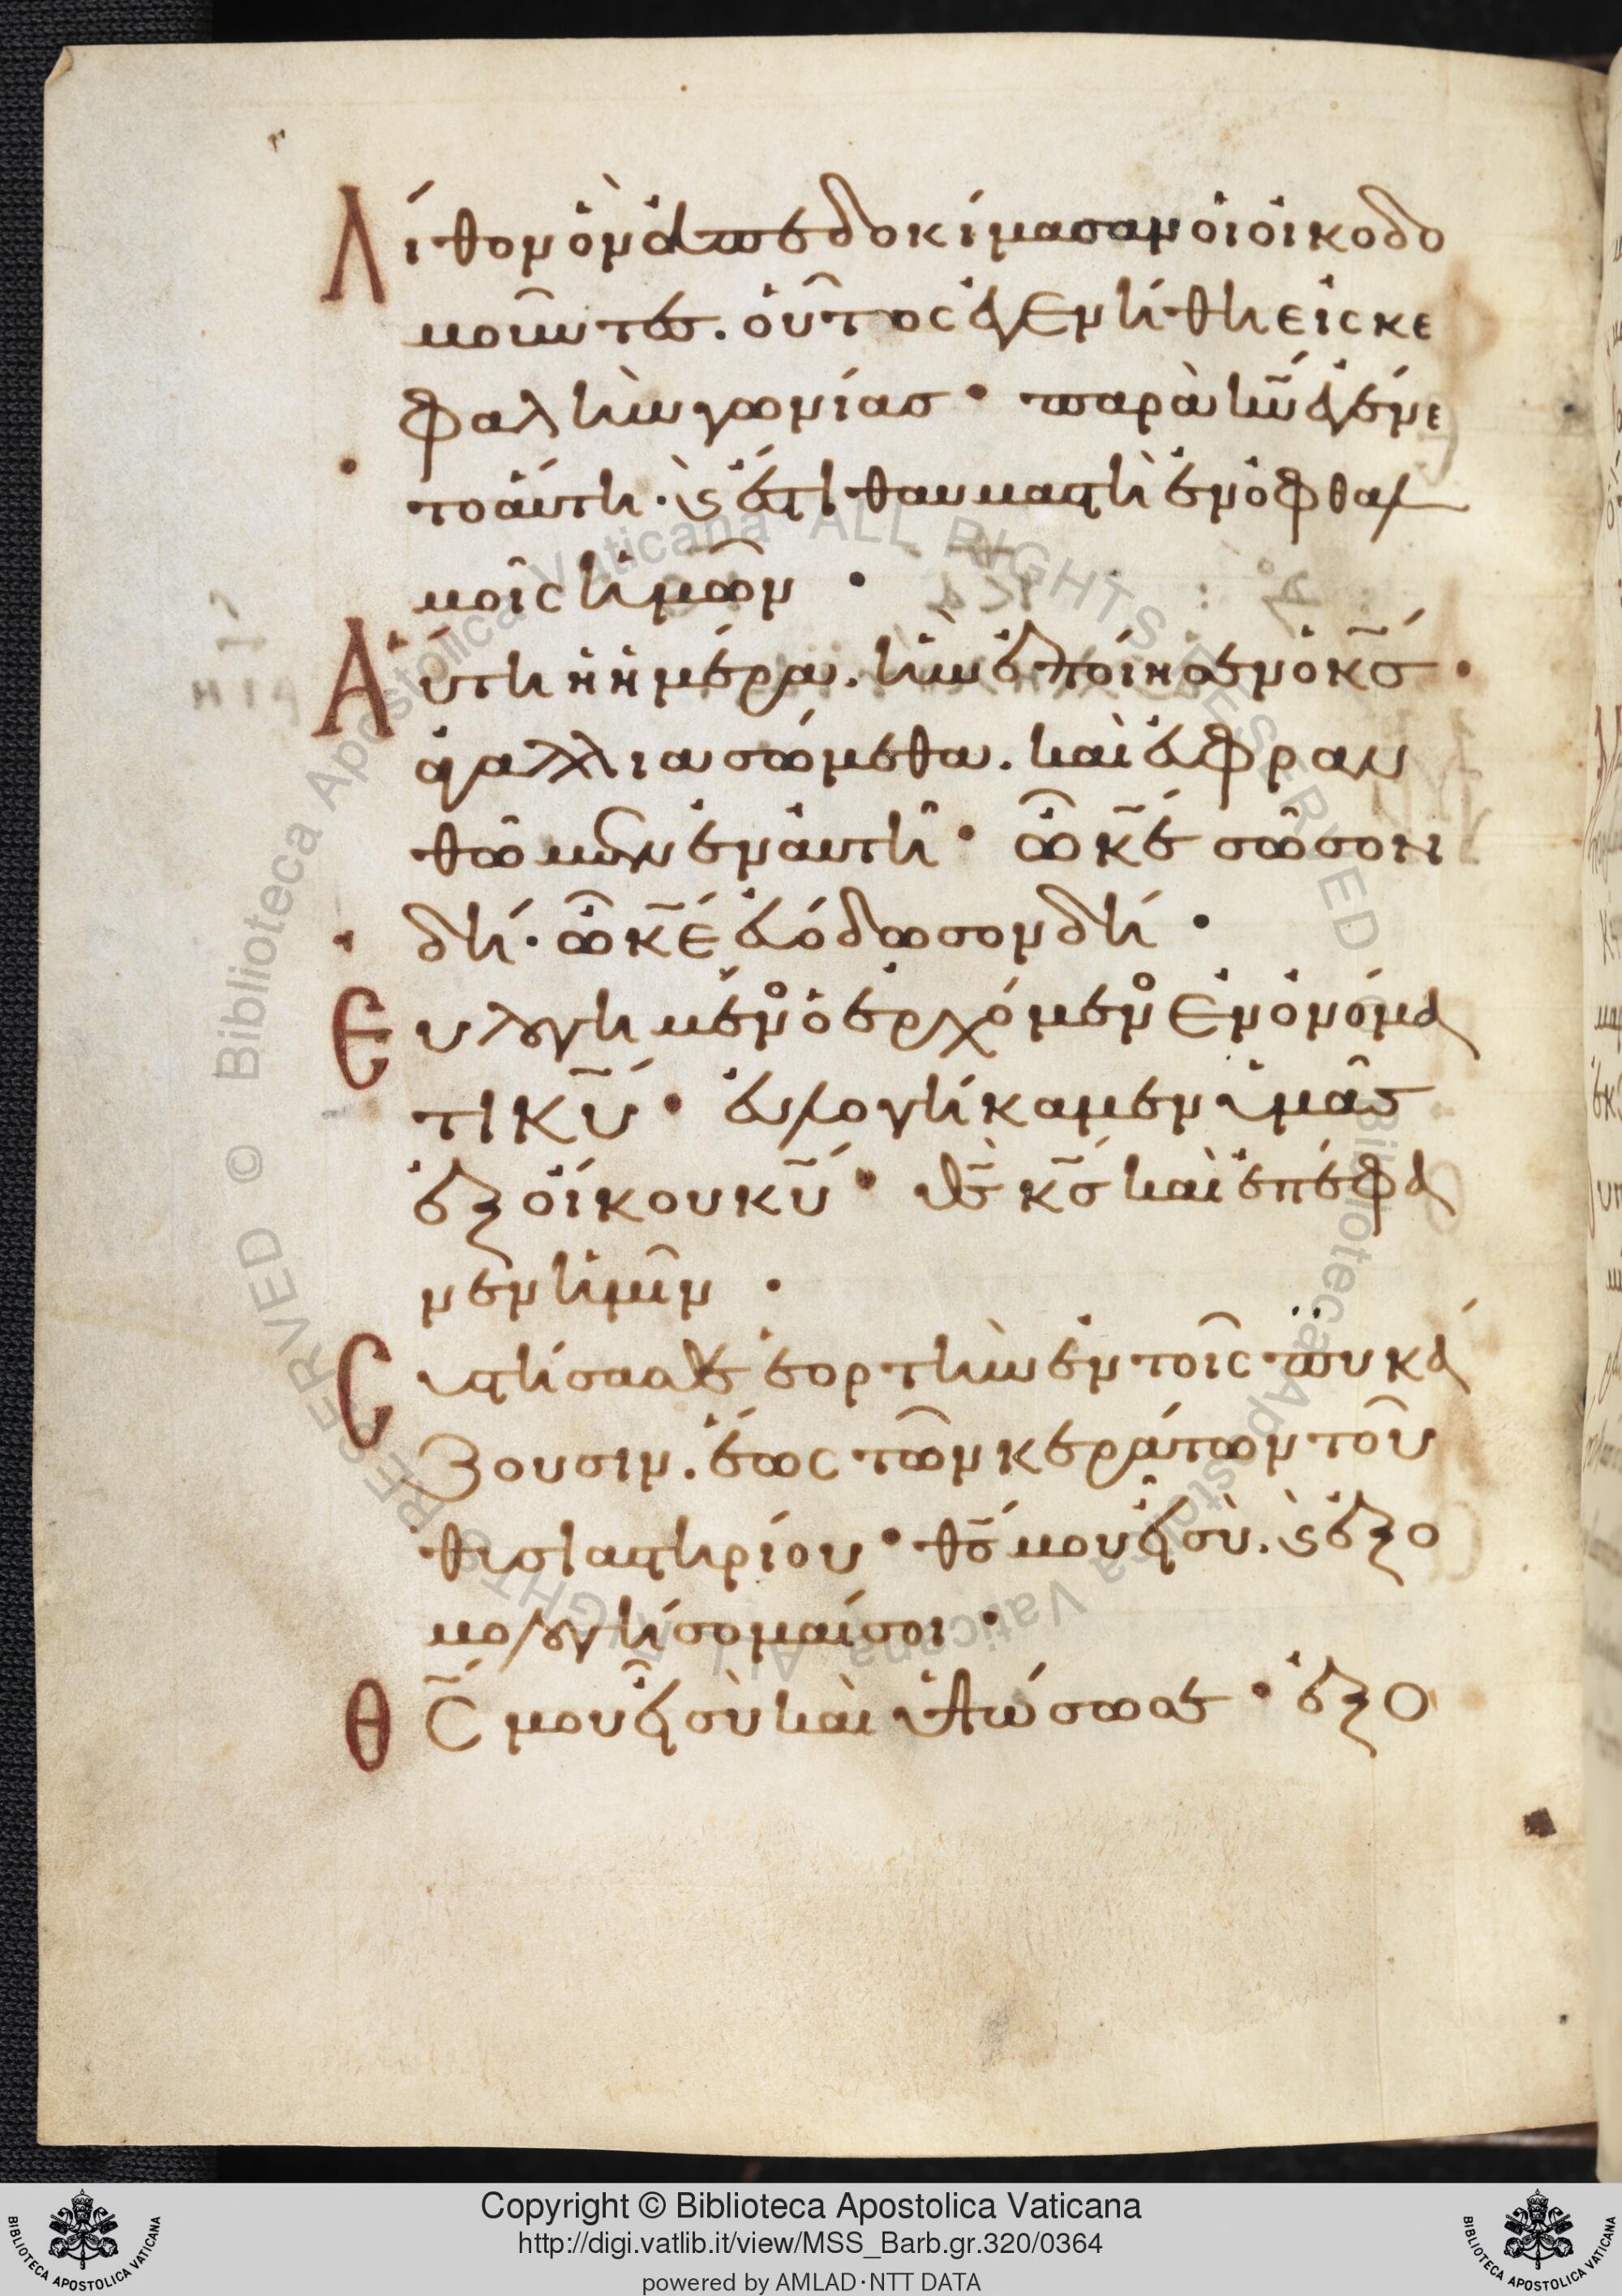 Λίθον ὃν ἀπεδοκίμασαν οἱ οἰκοδο
μοῦντες. οὗτος ἐγενήθη εἰς κε
φαλὴν γωνίας · παρὰ κῡ ἐγένε
το ἄυτη · ϗ ἔστι θαυμαστὴ ἐν ὀφθαλ
μοῖς ἡμῶν ·
Αὕτη ἡ ἡμέρα. ἣν ἐποίησεν ὁ κς̄ ·
ἀγαλλιασώμεθα. καὶ ἐυφραν
θῶμεν ἐν ἀυτῆ · ὦ κε̄ σῶσον
δή · ὦ κε̄ ἐυόδωσον δή ·
Ευλογημένος ὁ ἐρχόμενος ἐν ὀνόμα
τι κῡ · ἐυλογήκαμεν ὑμᾶς
ἐξ οἴκου κῡ · θς̄ κς̄ καὶ ἐπέφα
νεν ἡμῖν ·
Συστήσασθε ἑορτὴν ἐν τοῖς πυκά
ζουσιν. ἕως τῶν κεράτων τοῦ
θυσιαστηρίου · θς̄ μου εἶ σὺ. ϗ ἐξο
μολογήσομαί σοι ·
Θς̄ μου εἶ σὺ καὶ ὑψώσω σε · ἐξο
Copyright © Biblioteca Apostolica Vaticana
http://digi.vatlib.it/view/MSS_Barb.gr.320/0364
powered by AMLAD·NTT DATA
BIBLIOTECA APOSTOLICA VATICANA
BIBLIOTECA APOSTOLICA VATICANA
© Biblioteca Apostolica Vaticana ALL RIGHTS RESERVED
© Biblioteca Apostolica Vaticana ALL RIGHTS RESERVED